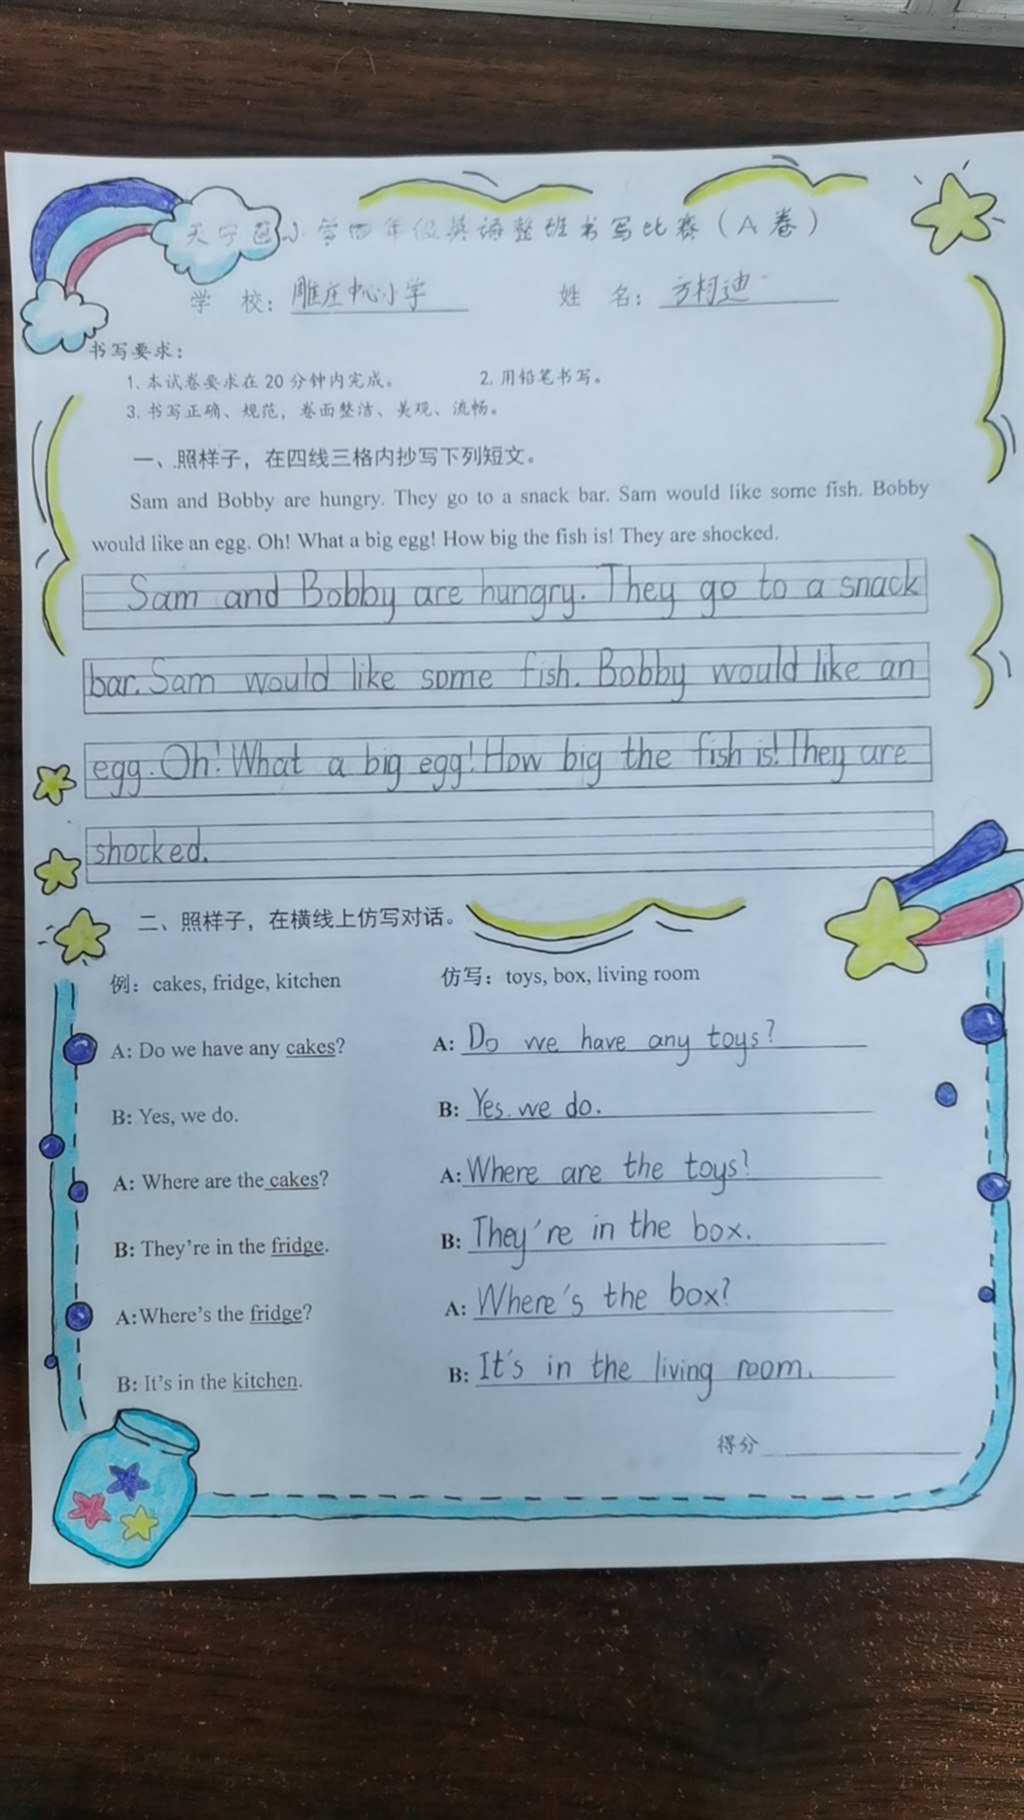 天宁区小学四年级英语整班书写比赛（A卷）
学 校：雕庄中心小学 姓 名：方柯迪
书写要求：
1. 本试卷要求在 20 分钟内完成。 2. 用铅笔书写。
3. 书写正确、规范，卷面整洁、美观、流畅。
一、照样子，在四线三格内抄写下列短文。
Sam and Bobby are hungry. They go to a snack bar. Sam would like some fish. Bobby
would like an egg. Oh! What a big egg! How big the fish is! They are shocked.
Sam and Bobby are hungry. They go to a snack
bar. Sam would like some fish. Bobby would like an
egg. Oh! What a big egg! How big the fish is! They are
shocked.
二、照样子，在横线上仿写对话。
例：cakes, fridge, kitchen 仿写：toys, box, living room
A: Do we have any cakes? A: Do we have any toys?
B: Yes, we do. B: Yes. we do.
A: Where are the cakes? A: Where are the toys?
B: They're in the fridge. B: They're in the box.
A:Where's the fridge? A: Where's the box?
B: It's in the kitchen. B: It's in the living room.
得分